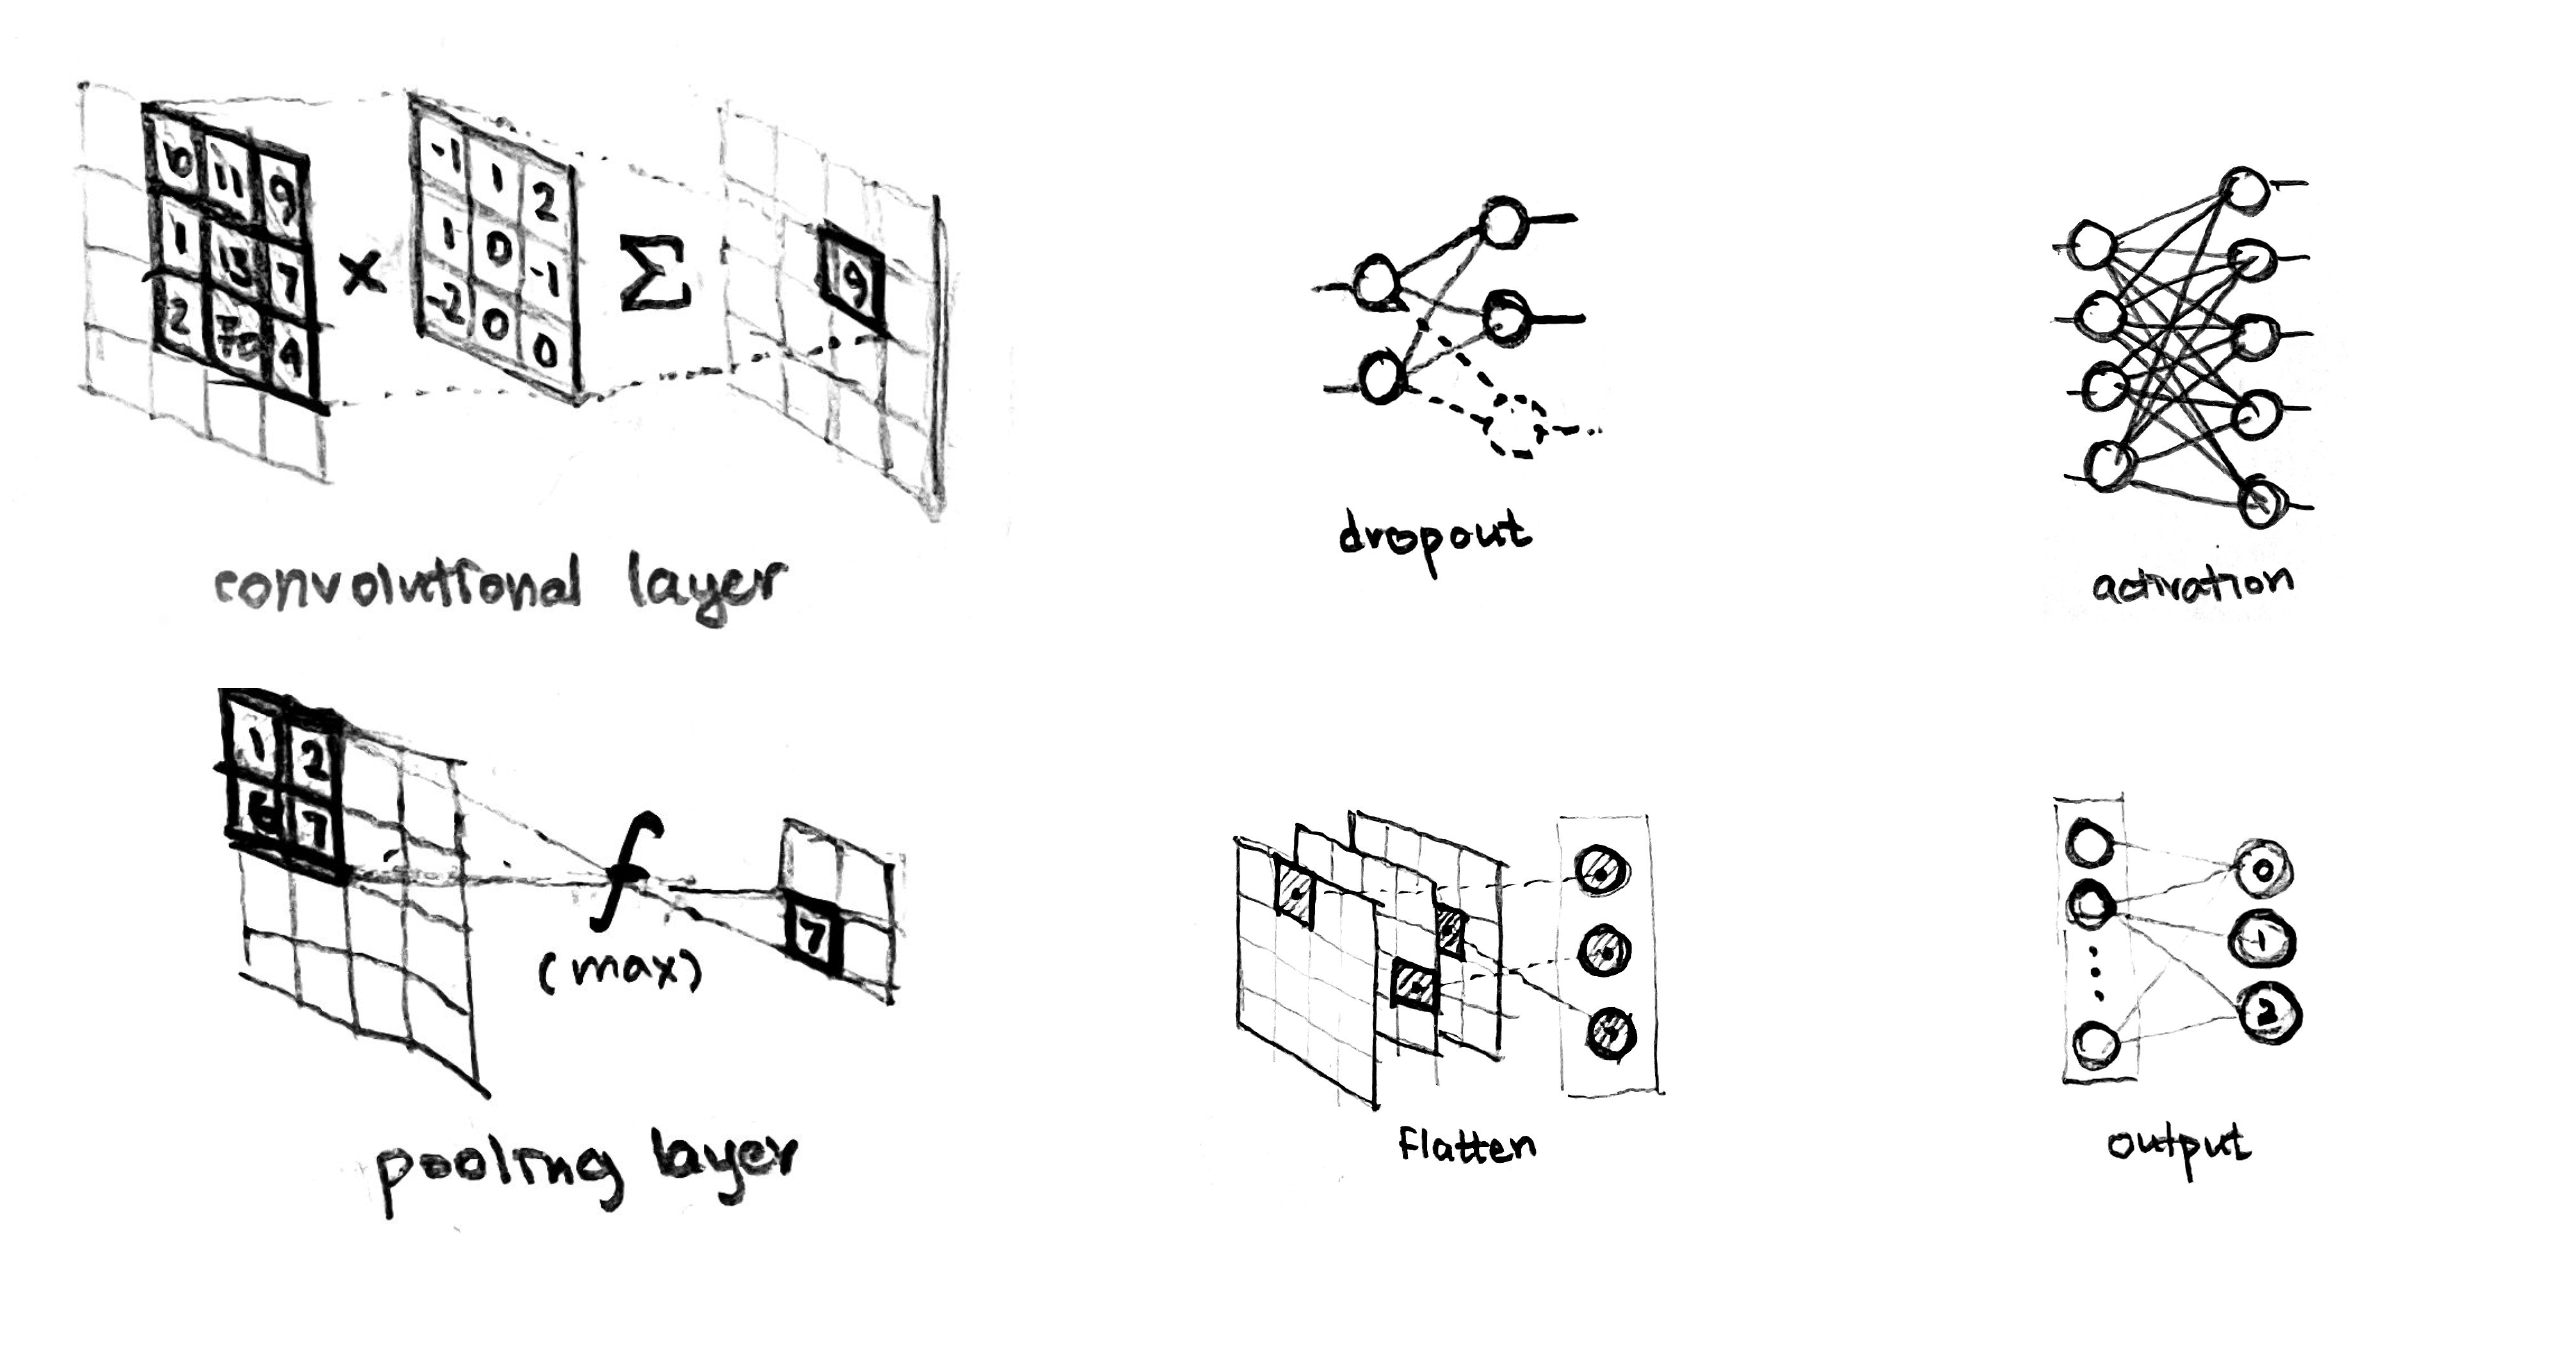 11 9
1 13 7
2
×
-1 1 2
1 0 -1
-2 0 0
Σ
9
convolutional layer
dropout
activation
1 2
7
f
(max)
7
pooling layer
flatten
0
1
2
output